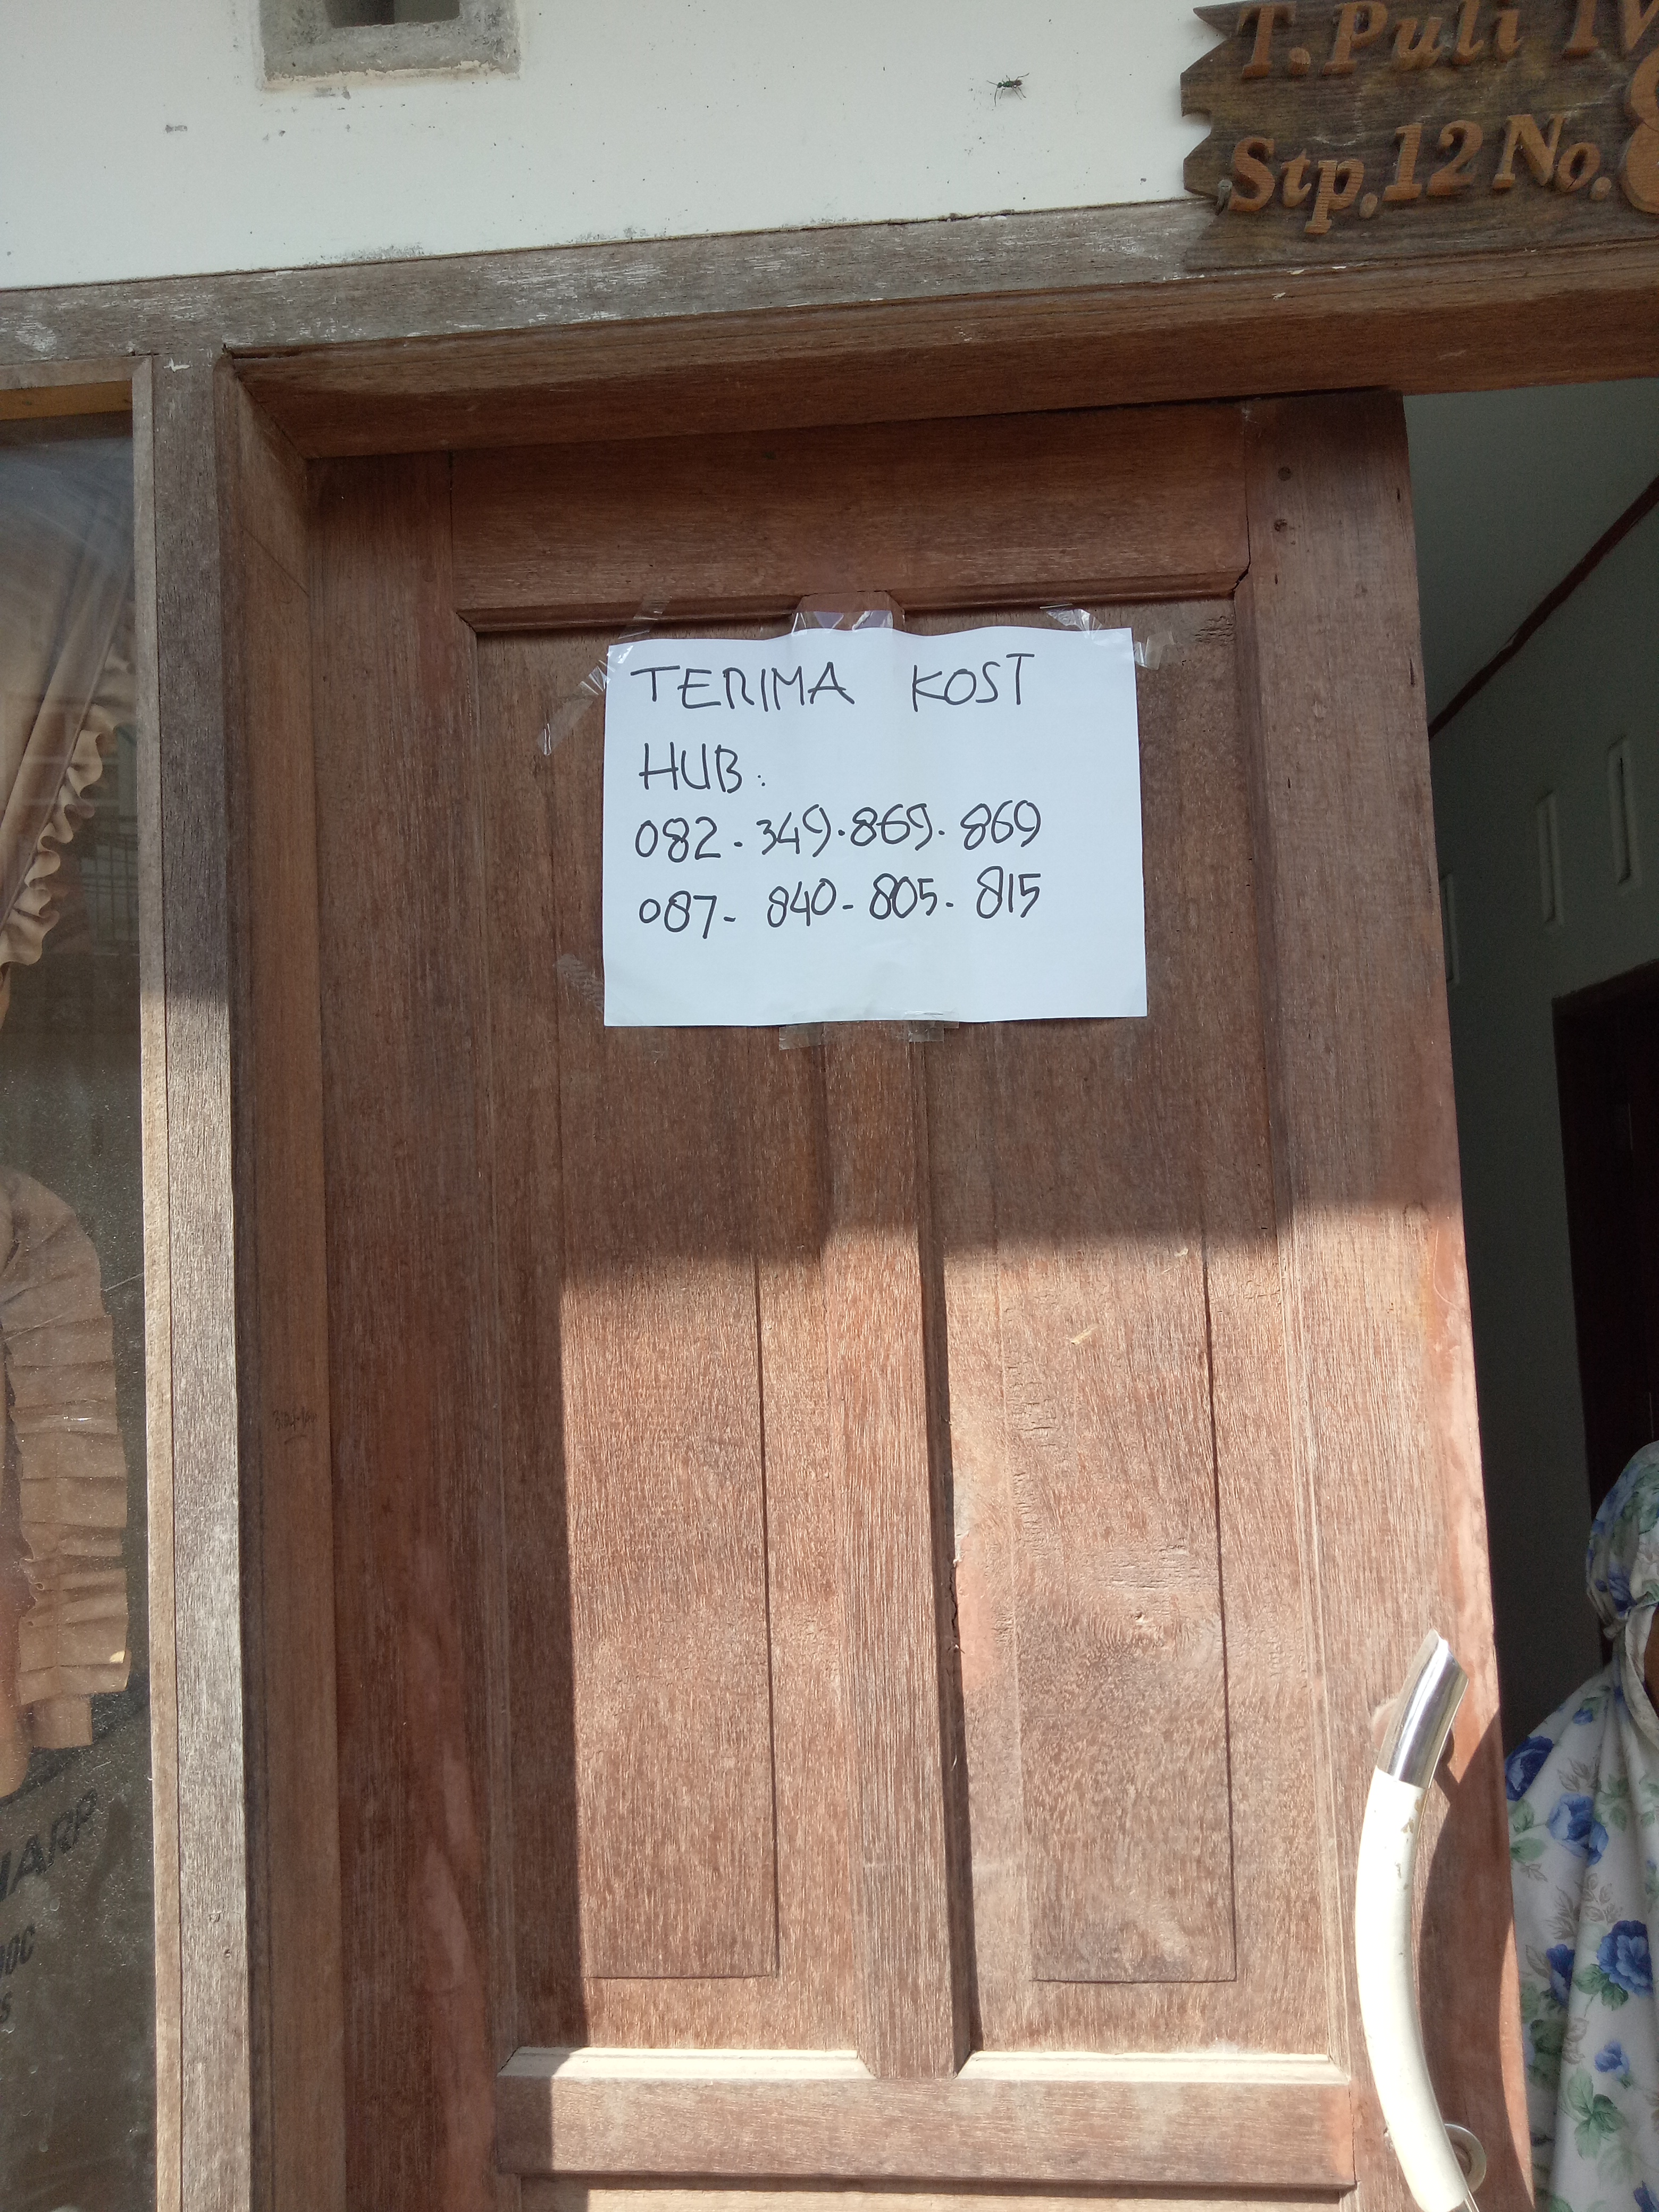 T. Puli IV
Stp. 12 No. 8
TERIMA KOST
HUB :
082 - 349. 869. 869
087 - 840 - 805 - 815